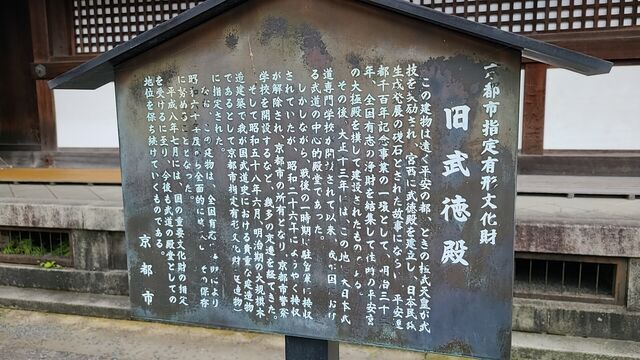 京都市指定有形文化財
旧武徳殿
この建物は遠く平安の都、ときの桓武天皇が武
技を奨励され、宮西に武徳殿を建立し、日本民族
生成発展の礎石とされた故事にならい、平安遷
都千百年記念事業の一環として、明治三十
年、全国有志の浄財を結集して往時の平安宮
の大極殿を模して建設されたものである。
その後、大正十三年には、この地に大日本武
道専門学校が開設されて以来、我が国における
武道の中心的殿堂であった。
しかしながら、戦後の一時期に駐留軍に接収
されていたが、昭和二十六年にようやく接収
が解除され、京都市の所有となり、京都市警察
学校を開設するなど、幾多の変遷を経てきた。
そして、昭和五十八年六月、明治期の大規模木
造建築で我が国武道史における貴重な建造物
であるとして京都市指定有形文化財（建造物）
に指定された。
なお、この建物は、全国有志の
昭和六十 年度から全面的に その保存
に努めることとなった。
平成八年七月には、国の重要文化財の指定
を受けるに至り、今後も武道の殿堂としての
地位を保ち続けていくものである。
京都市